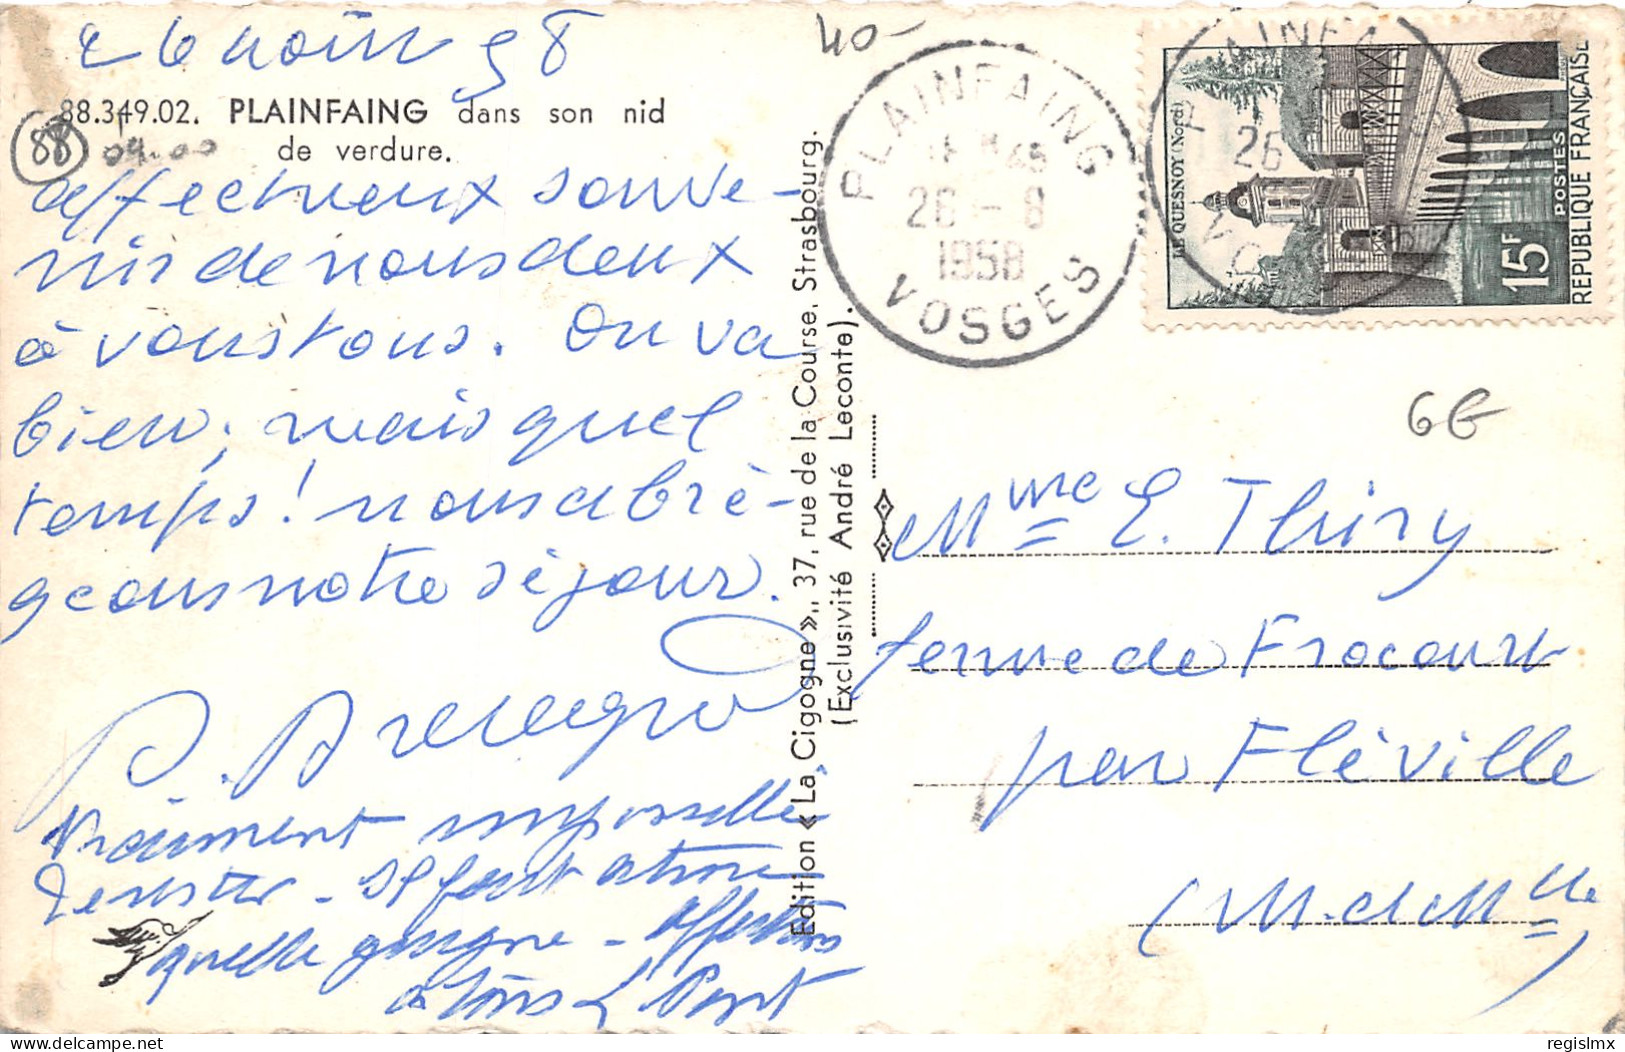 26 août 58
88.349.02. PLAINFAING dans son nid
de verdure.
88
09.00
affectueux souve-
nirs de nous deux
à vous tous. On va
bien, mais quel
temps! nous abrè-
geons notre séjour.
Vraiment impossible
de rester - Il fait
quelle guigne - Affections
à tous
Edition « La Cigogne », 37, rue de la Course, Strasbourg.
(Exclusivité André Leconte).
40-
PLAINFAING
18 H 45
26 - 8
1958
VOSGES
LE QUESNOY (Nord)
15F
POSTES
REPUBLIQUE FRANÇAISE
6E
Mme E. Thiry
ferme de Frocourt
par Fléville
(M. et Mlle)
regislmx